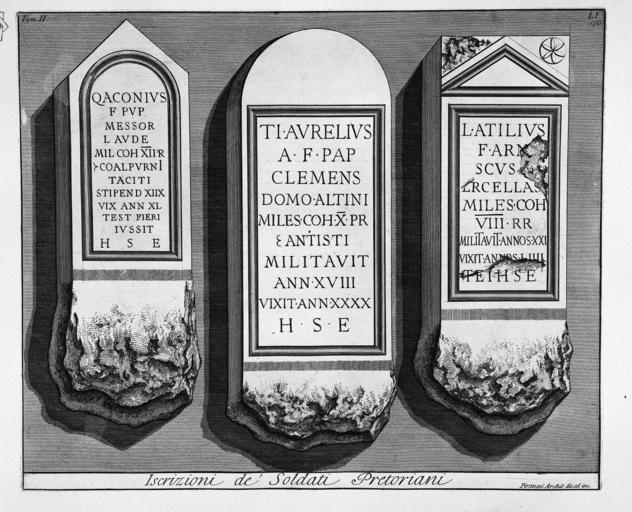 Tom. II.
LI
QACONIVS
F PVP
MESSOR
LAVDE
MIL COH XII PR
COALPVRNI
TACITI
STIPEND XIIX
VIX ANN XL
TEST FIERI
IVSSIT
H S E
TI·AVRELIVS
A·F·PAP
CLEMENS
DOMO·ALTINI
MILES·COH·X·PR
ANTISTI
MILITAVIT
ANN·XVIII
VIXIT·ANN·XXXX
H·S·E
L·ATILIVS
F·ARN
SCVS
ERCELLAS
MILES·COH
VIII·RR
MILITAVIT·ANNOS·XXI
VIXIT·ANNOS·LIIII
TEIHSE
Iscrizioni de' Soldati Pretoriani
Piranesi Archit. dis. ed inc.